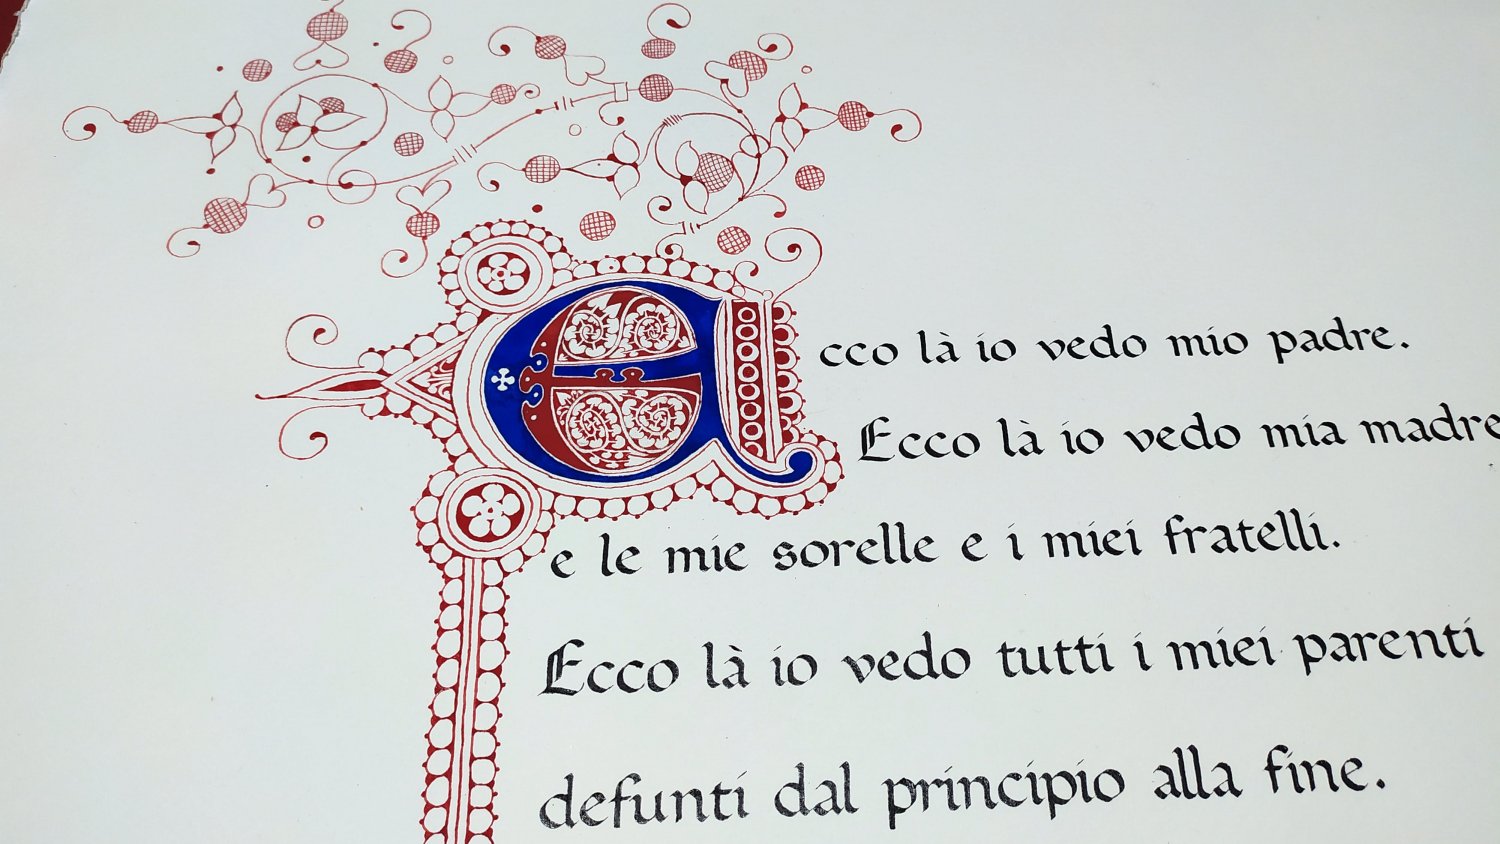 Ecco là io vedo mio padre.
Ecco là io vedo mia madre
e le mie sorelle e i miei fratelli.
Ecco là io vedo tutti i miei parenti
defunti dal principio alla fine.